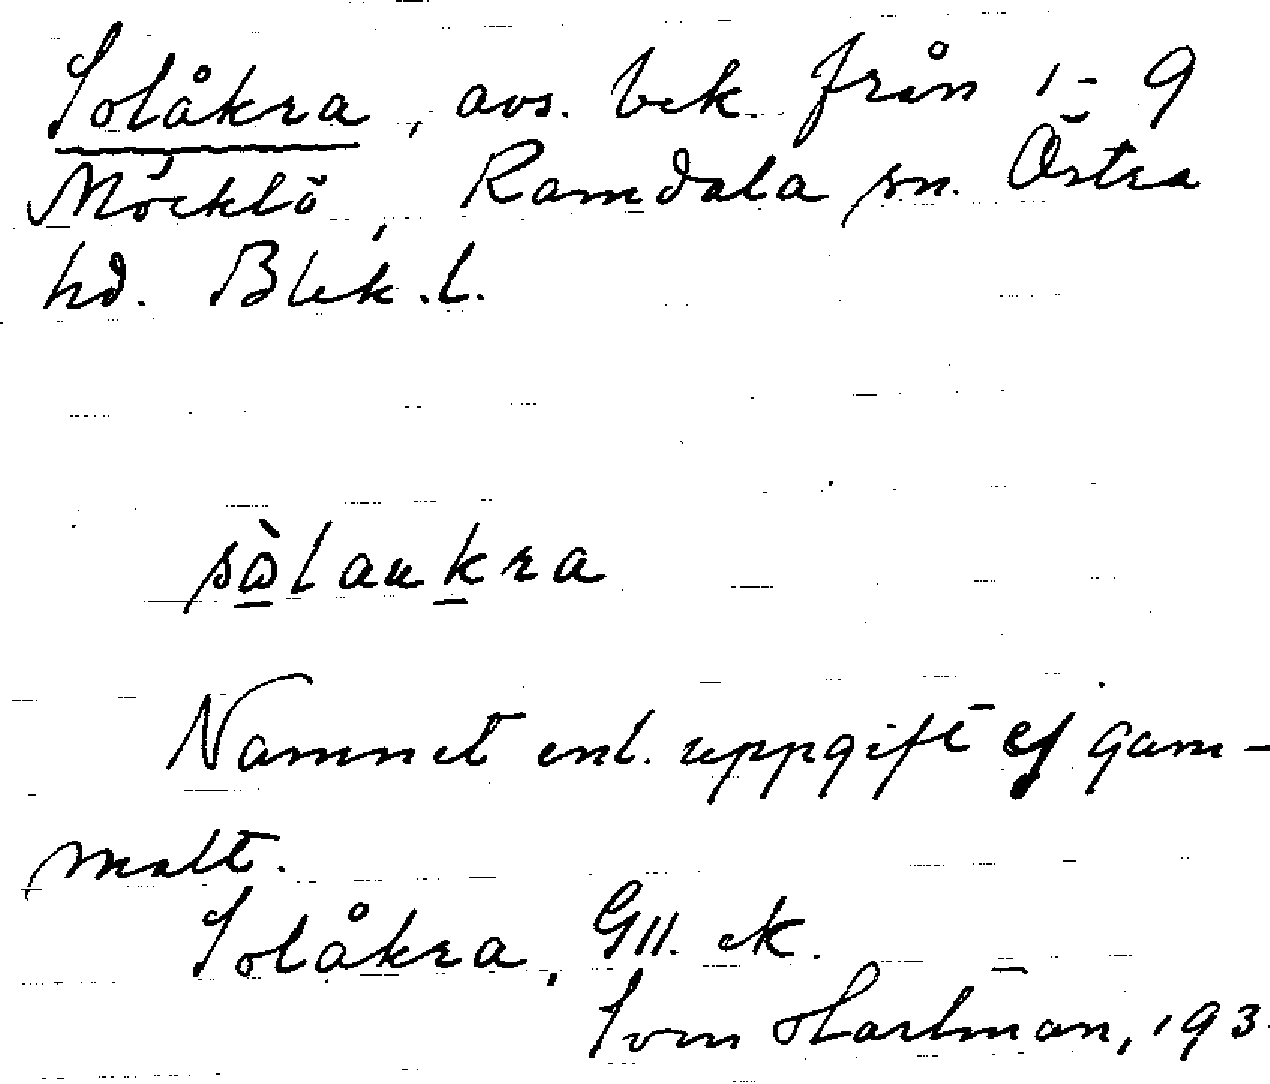 Solåkra, avs. bek. från 1-9
Möcklö, Ramdala sn. Östra
hd. Blek.l.
Namnet enl. uppgift ej gam-
malt.
Solåkra, Gll. ek.
Sven Hartman, 193